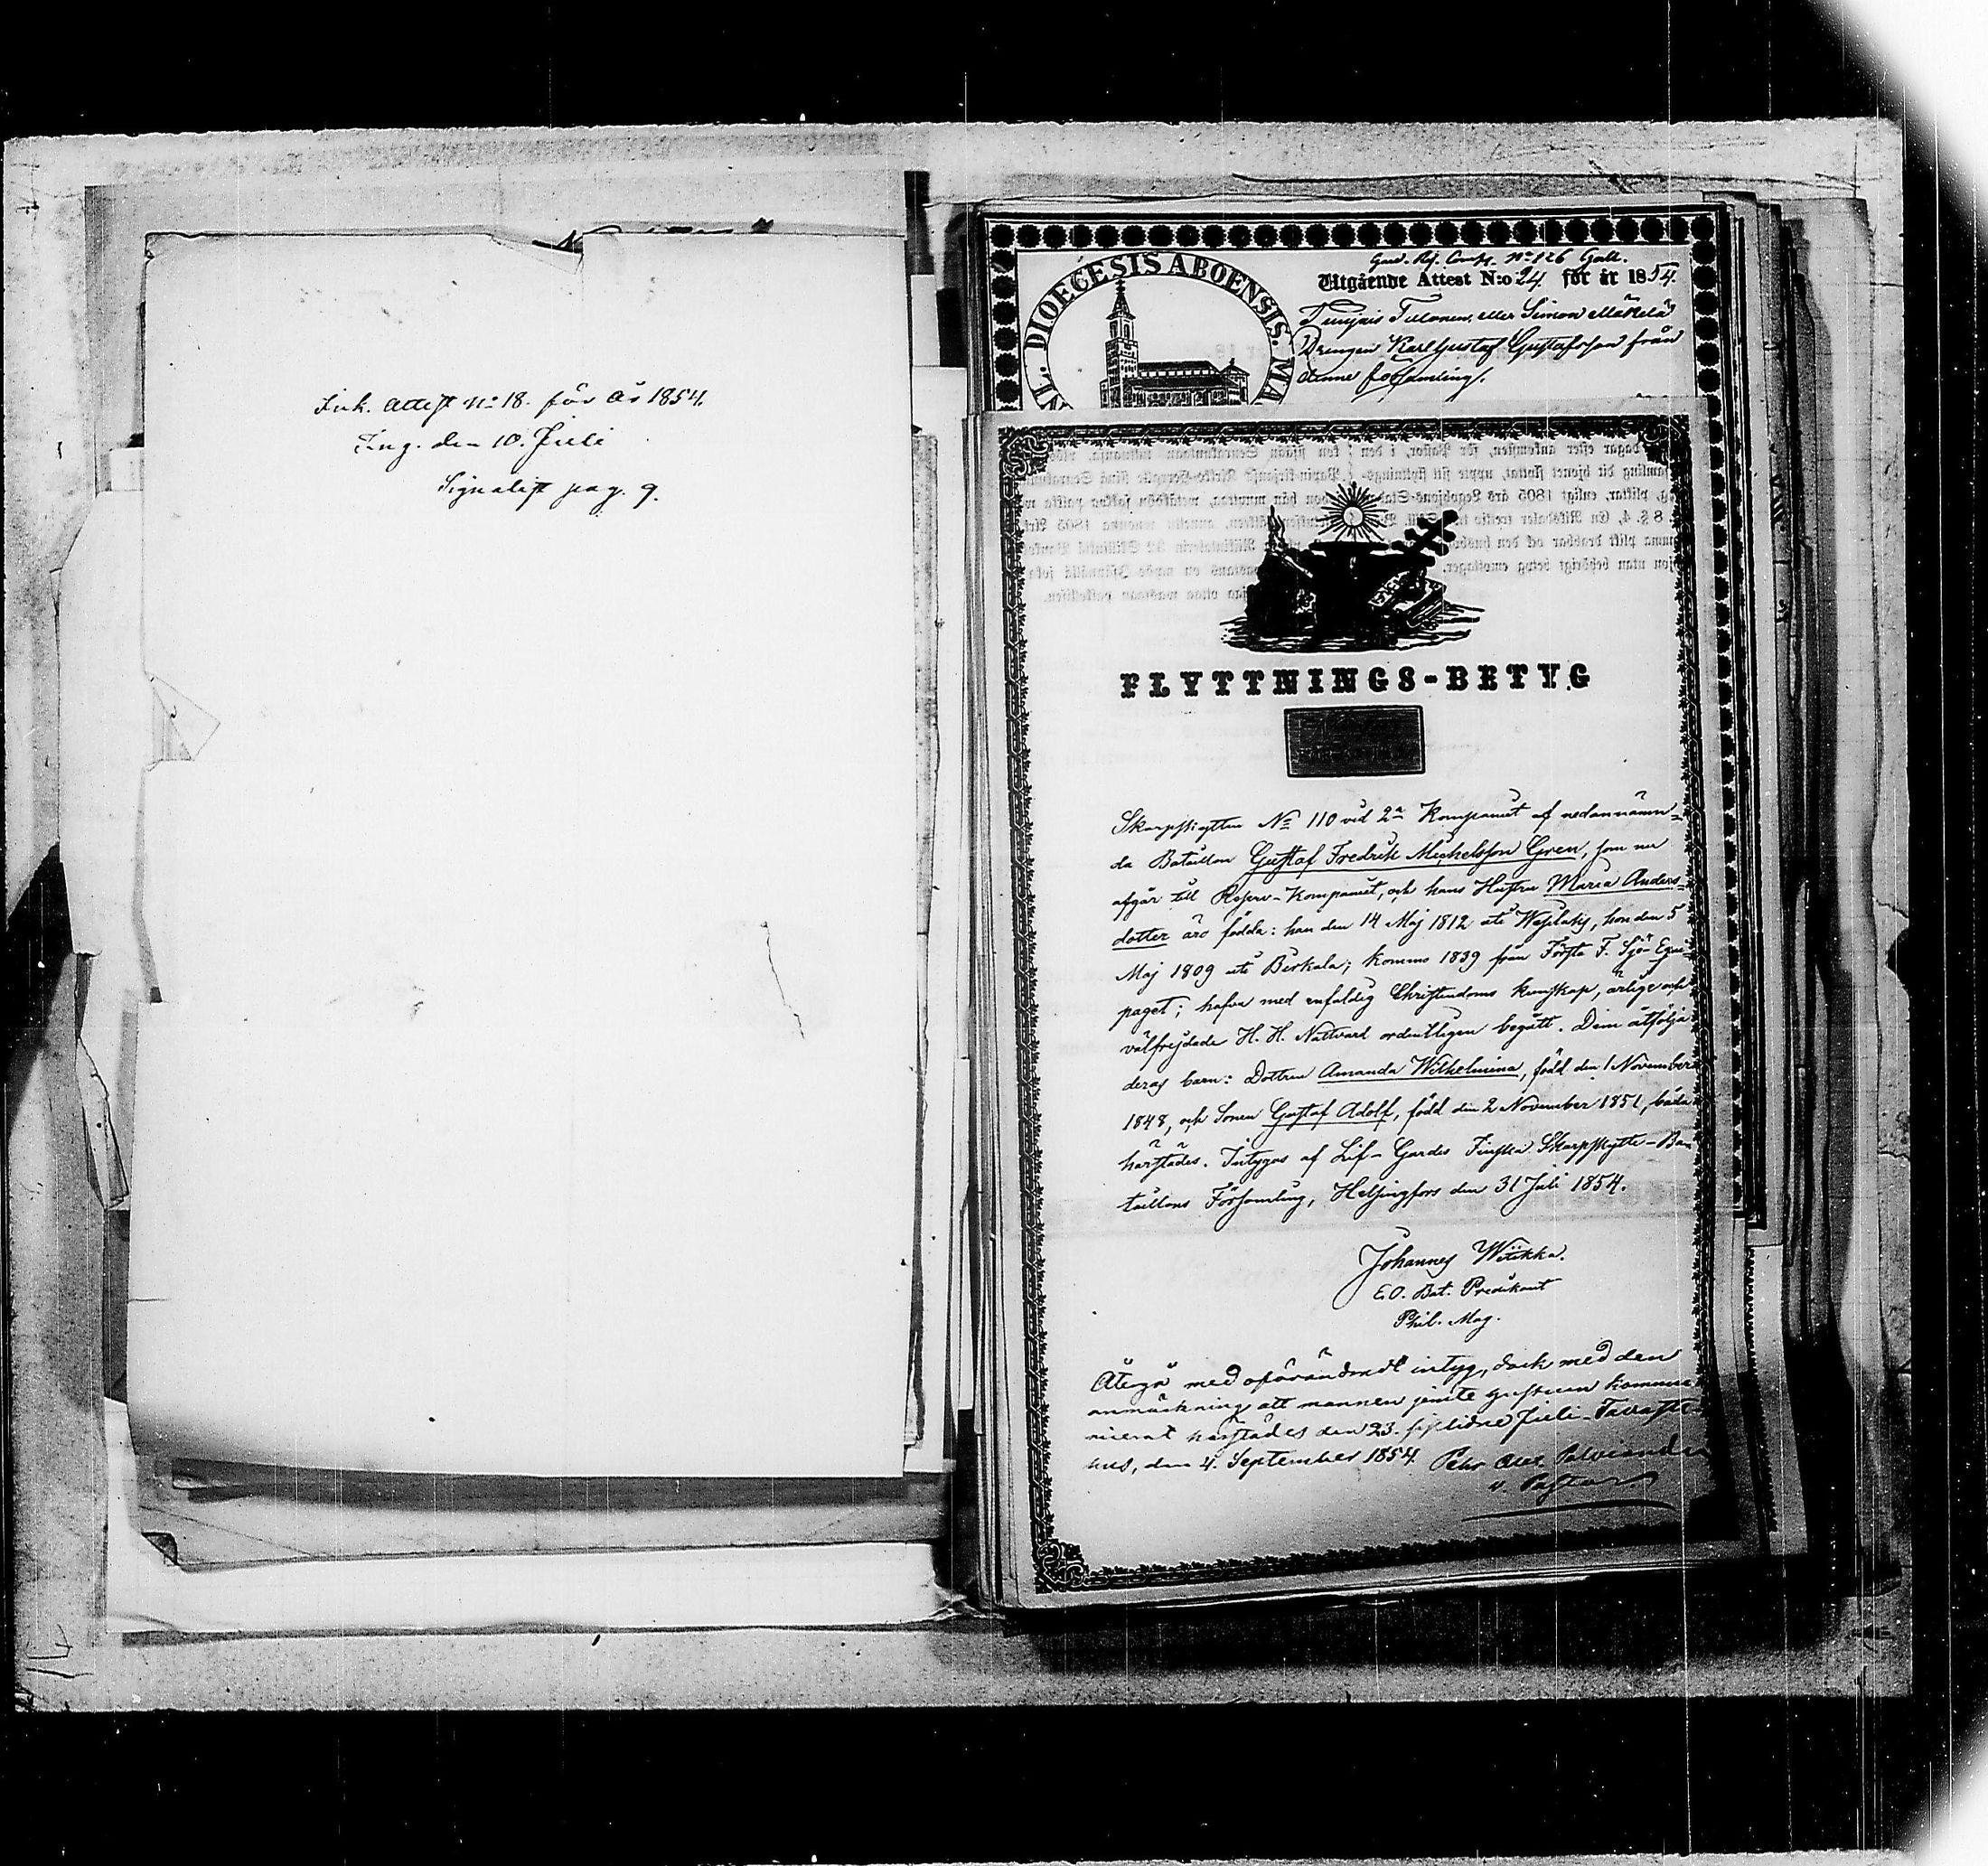 Ink. Attest No 18. för år 1854.
Ing. den 10. Juli
Signalist pag. 9.
DIOECESIS ABOENSIS.
No 126
Utgående Attest N:o 24 för år 1854.
eller Simon Mäkelä
Drengen Karl Gustaf Gustafsson från
denne församling.
FLYTTNINGS-BETYG
Skarpskytten No 110 vid 2a Kompaniet af nedannämn-
da Bataillon Gustaf Fredrik Michelsson Gren, som nu
afgår till Reserv-Kompaniet, och hans Hustru Maria Anders-
dotter äro födda: han den 14 Maj 1812 uti Wesilaks, hon den 5
Maj 1809 uti Birkala; komne 1839 från Första F. Sjö-Equi-
paget; hafva med enfaldig Christendoms kunskap, ärlige och
välfrejdade H. H. Nattvard ordentligen begått. Dem åtfölja
deras barn: Dottren Amanda Wilhelmina, född den 1 November
1848, och Sonen Gustaf Adolf, född den 2 November 1851, båda
härstädes. Intygas af Lif-Gardes Finska Skarpskytte-Ba-
taillons Församling, Helsingfors den 31 Juli 1854.
Johannes Wiikka.
E.O. Bat. Predikant
Phil. Mag.
Återgå med oförändradt intyg, dock med den
anmärkning att mannen jemte hustrun kommu-
nicerat härstädes den 23. sistlidne Juli. Tavaste-
hus, den 4. September 1854. Pehr Alex.
v. Pastor.